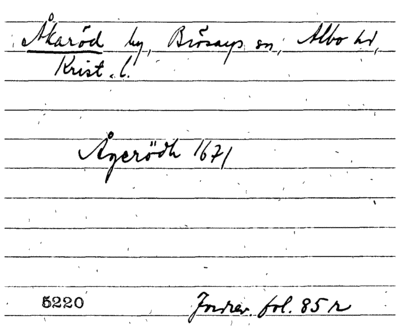 Åkaröd by, Brösarps sn, Albo hd,
Krist. l.
Ågerödh 1671
5220 Jordrev. fol. 85 r